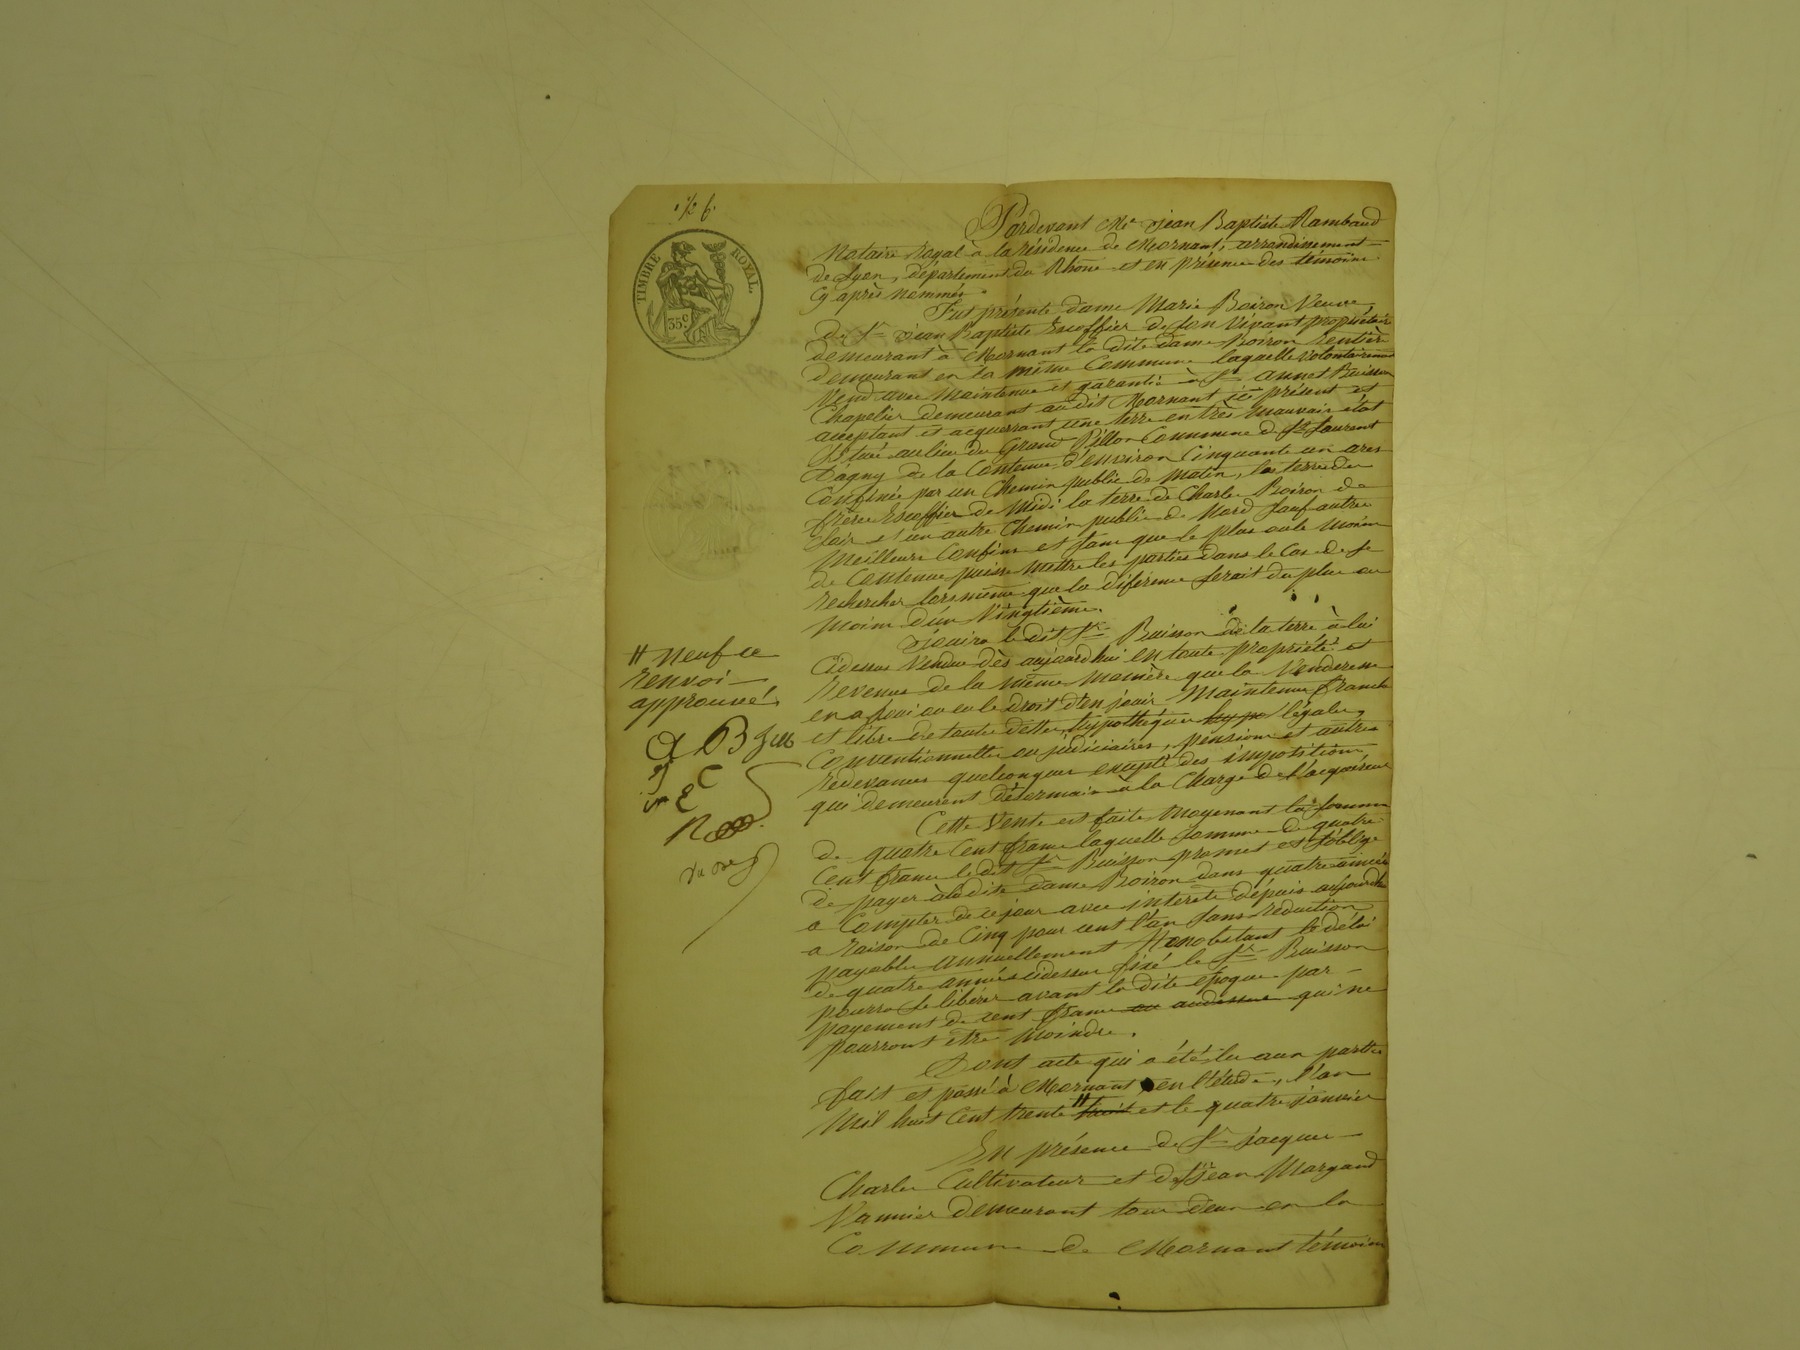 TIMBRE ROYAL.
35.c
Pardevant Me Jean Baptiste Rambaud
Notaire Royal à la résidence de Mornant, arrondissement
de Lyon, département du Rhône et en présence des témoins
Cy après nommés.
Fut présente dame Marie Boiron Veuve
de Sr Jean Baptiste Escoffier de son vivant propriétaire
demeurant à Mornant la dite dame Boiron rentière
demeurant en la même Commune laquelle volontairement
Vend avec maintenue et garantie à Sr annet Buisson
Chapelier demeurant audit Mornant ici présent et
acceptant et acquerrant une terre en très mauvais état
Située au lieu du Grand Pillon Commune de St Laurent
Dagny de la Contenue d'environ Cinquante un ares
Confinée par un Chemin public de matin, la terre de
frère Escoffier de Midi la terre de Charle Boiron de
Soir et un autre Chemin public de Nord Sauf autres
Meilleurs Confins et sans que le plus ou le moins
de Contenue puisse mettre les parties dans le Cas de se
rechercher lors même que la diférence serait du plus au
moins d'un Vingtième.
Jouira le dit Sr Buisson de la terre à lui
Cidessus Vendue dès aujourd'hui en toute propriété et
Revenus de la même manière que la Venderesse
en a joui ou eu le Droit d'en jouir Maintenue franche
et libre de toute dettes, hypothèques hypo légales
Conventionnelles ou judiciaires, pensions et autres
redevances quelconques excepté des impositions
qui demeurent désormais à la Charge de l'acquéreur
Cette Vente est faite Moyenant la somme
de quatre Cent francs laquelle somme de quatre
Cent francs le dit Sr Buisson promet et s'oblige
de payer à la dite dame Boiron dans quatre années
a Compter de ce jour avec intérêts dépuis aujourdhui
a raison de Cinq pour cent l'an sans réduction
payables annuellement Nonobstant le délai
de quatre années cidessus fixé le Sr Buisson
pourra se libérer avant la dite époque par
payement de cent francs ou audessus qui ne
pourront être moindre.
Dont acte qui a été lu aux parties
fait et passé à Mornant en l'étude, l'an
Mil huit Cent trente # huit et le quatre janvier
En présence de Sr jacques
Charles Cultivateur et de Sr Jean Margand
Vannier demeurant tous deux en la
Commune de Mornant témoins
# neuf ce
renvoi
approuvé
A B
E C